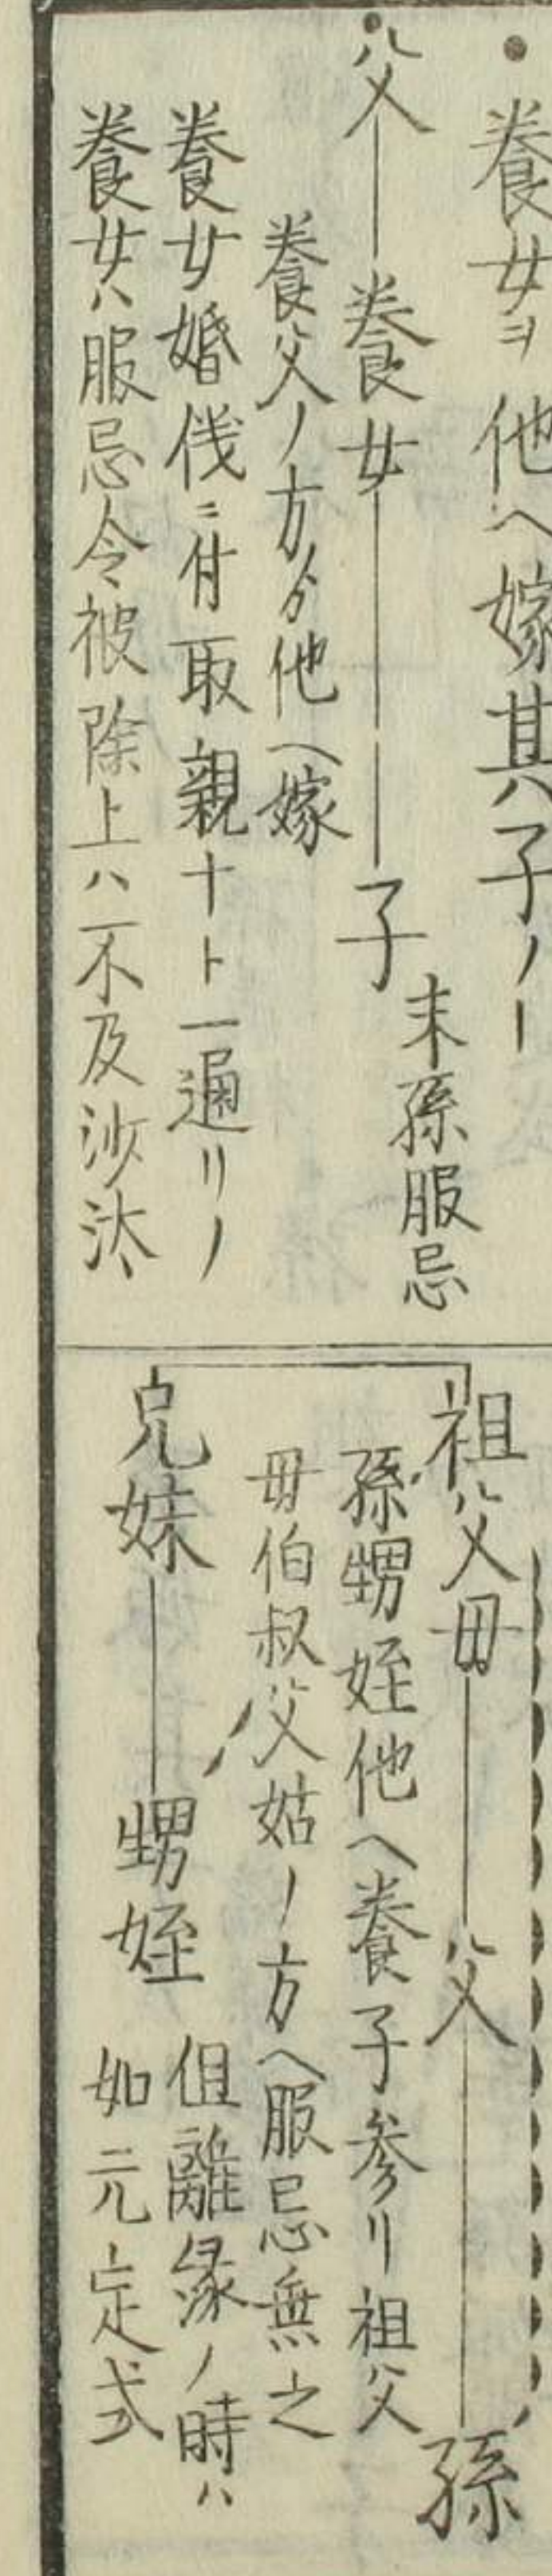 養女ヲ他ヘ嫁其子ノ一
父 養女 子 末孫服忌
養父ノ方ゟ他ヘ嫁
養女婚儀ニ付取親ナト一通リノ
養女ハ服忌令被除上ハ不及沙汰
祖父母 父 孫
孫甥姪他ヘ養子参リ祖父
母伯叔父姑ノ方ヘ服忌無之
兄妹 甥姪 但離縁ノ時ハ
如元定式